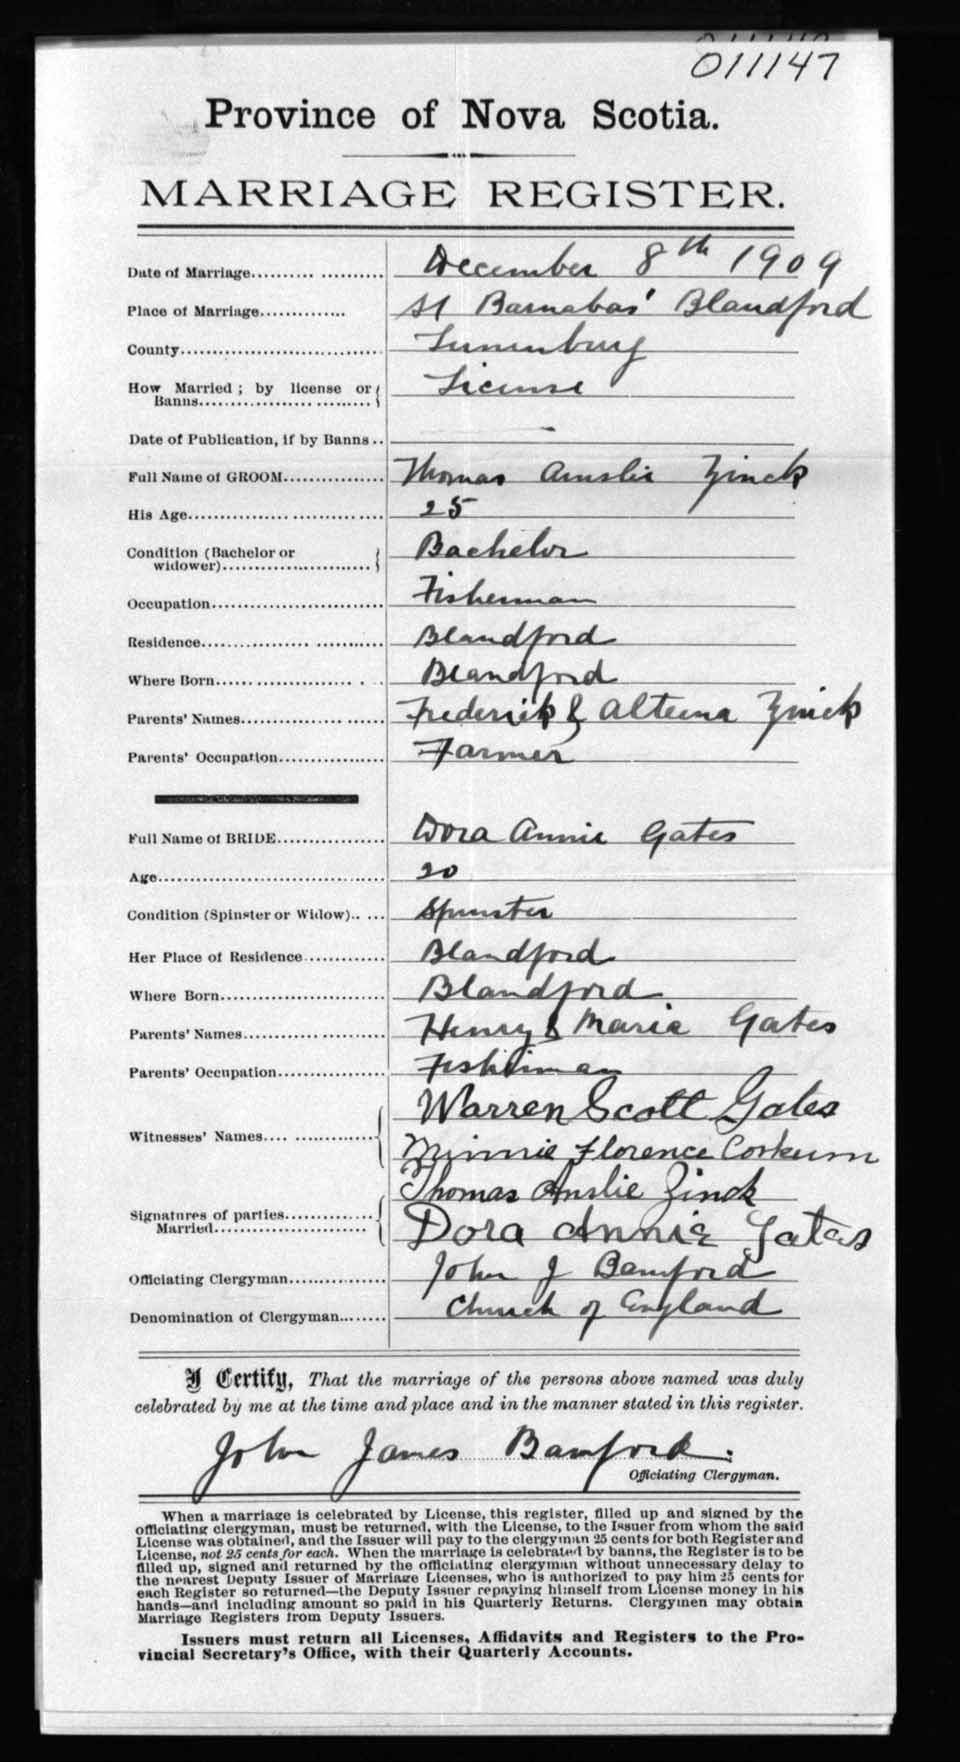 011147
Province of Nova Scotia.
MARRIAGE REGISTER.
Date of Marriage.................... December 8th 1909
Place of Marriage.............. St Barnabas' Blandford
County................................ Lunenburg
How Married ; by license or
Banns.......................... License
Date of Publication, if by Banns .. -
Full Name of GROOM................ Thomas Ainslie Zinck
His Age............................... 25
Condition (Bachelor or
widower)........................ Bachelor
Occupation............................ Fisherman
Residence............................. Blandford
Where Born........................ Blandford
Parents' Names....................... Frederick & Alteena Zinck
Parents' Occupation................. Farmer
Full Name of BRIDE................. Dora Annie Gates
Age.................................... 20
Condition (Spinster or Widow)..... Spinster
Her Place of Residence............ Blandford
Where Born......................... Blandford
Parents' Names...................... Henry & Maria Gates
Parents' Occupation................. Fisherman
Witnesses' Names.................. Warren Scott Gates
Minnie Florence Corkum
Signatures of parties.............. Thomas Anslie Zinck
Married....................... Dora Annie Gates
Officiating Clergyman.............. John J Bamford
Denomination of Clergyman........ Church of England
I Certify, That the marriage of the persons above named was duly
celebrated by me at the time and place and in the manner stated in this register.
John James Bamford.
Officiating Clergyman.
When a marriage is celebrated by License, this register, filled up and signed by the
officiating clergyman, must be returned, with the License, to the Issuer from whom the said
License was obtained, and the Issuer will pay to the clergyman 25 cents for both Register and
License, not 25 cents for each. When the marriage is celebrated by banns, the Register is to be
filled up, signed and returned by the officiating clergyman without unnecessary delay to
the nearest Deputy Issuer of Marriage Licenses, who is authorized to pay him 25 cents for
each Register so returned—the Deputy Issuer repaying himself from License money in his
hands—and including amount so paid in his Quarterly Returns. Clergymen may obtain
Marriage Registers from Deputy Issuers.
Issuers must return all Licenses, Affidavits and Registers to the Pro-
vincial Secretary's Office, with their Quarterly Accounts.